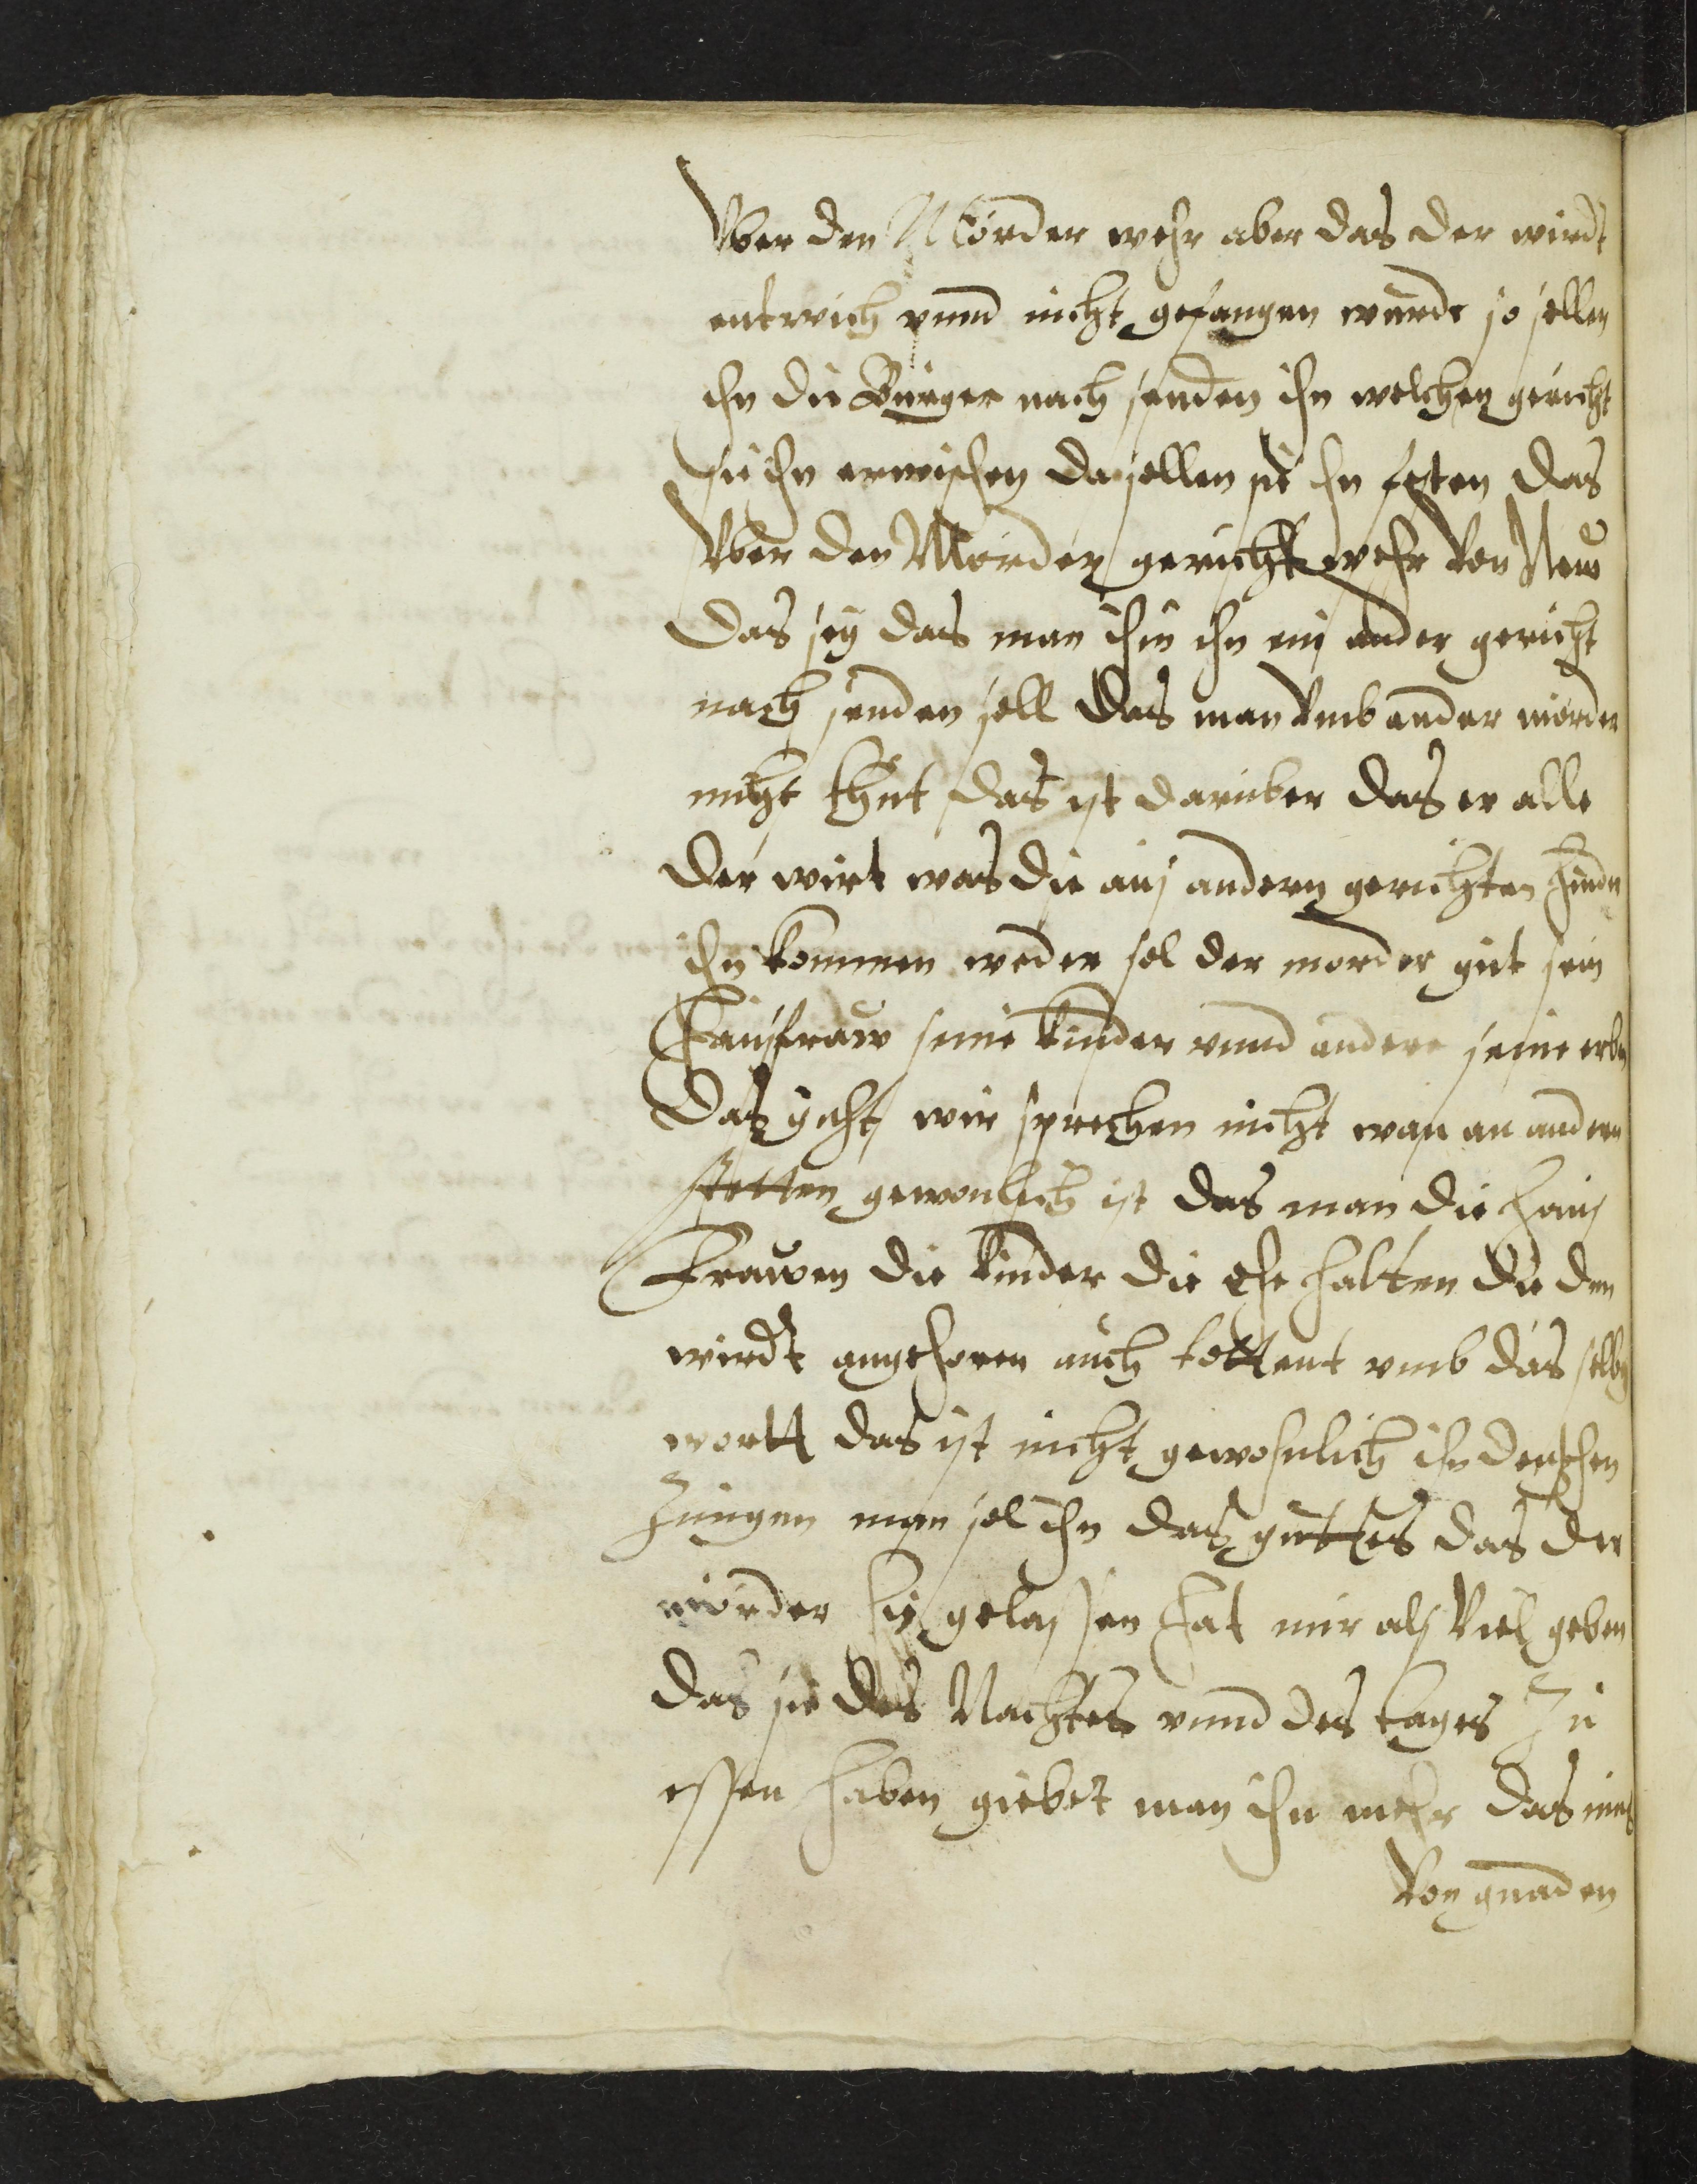 Vber den Mörder wehr aber das der wirdt
entwich vnnd nicht gefangen wurde so sollen
ihn die Burger nach senden ihn welchen gericht
sie ihn erwischen da sollen sie ihn das
Vber den Mörder gericht wehr von
Das sey das man ihm ihn ein ander gericht
nach senden soll das man vmb ander mörder
nicht thut das ist daruber das er alle
der wirt was die auß andern gerichten
ihn kommen weder sol der morder gut sein
Haußfraw seine Kinder vnnd andere seine erben
Das wir sprechen nicht wan an andern
stetten gewonlich ist das man die hauß
Frawen die Kinder die Ehehalten die den
wirdt angehoren auch tottent vmb das selbe
wortt das ist nicht gewohnlich ihn
Zungen man sol ihn das guttes das der
mörder hie gelassen hat nur alß viel geben
das sie des Nachtes vnnd des tages Zu
essen haben giebet man ihn mehr das
von gnaden